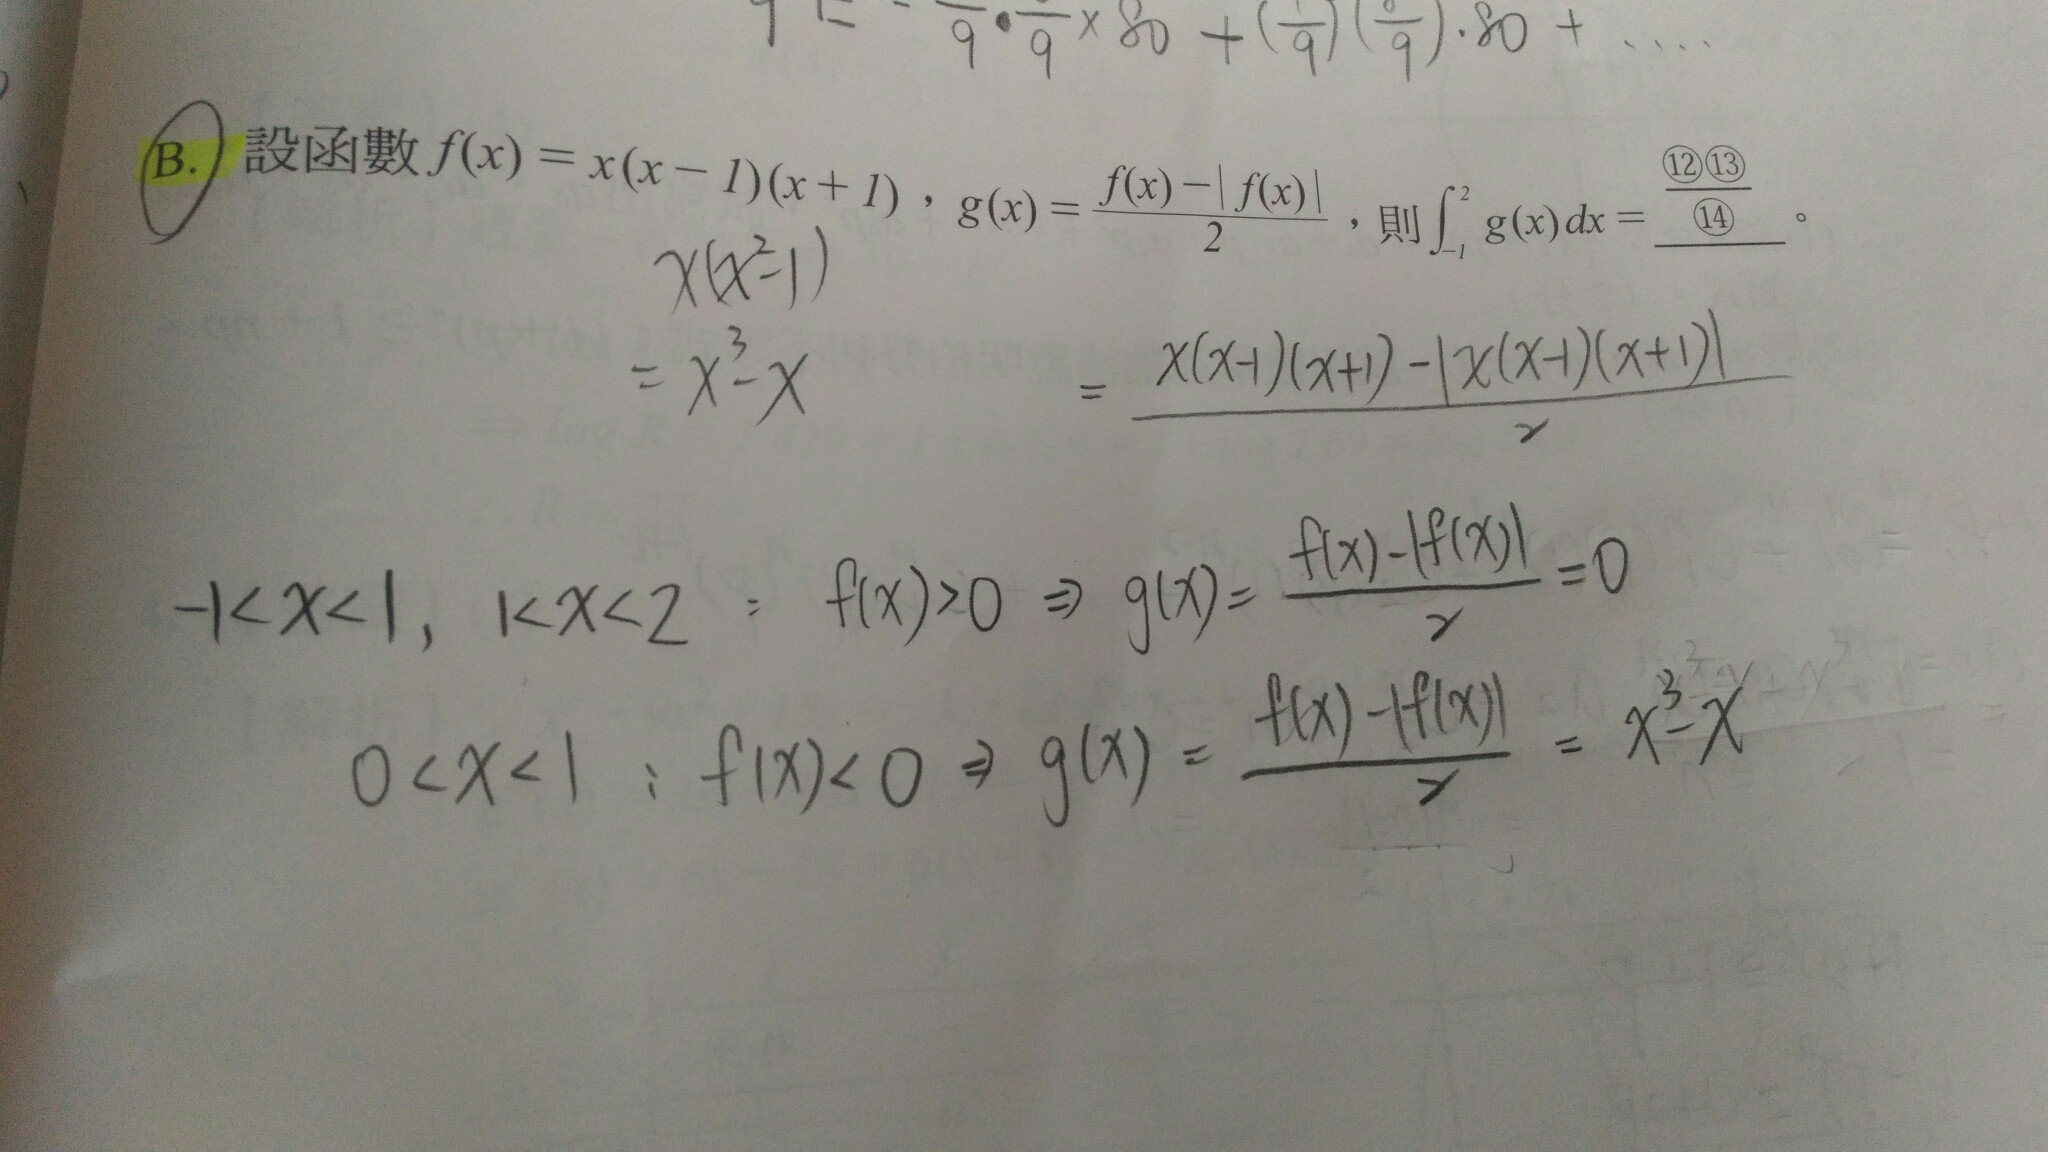 9 · 9 × 80 + (1/9)(8/9)·80 + ....
B. 設函數 f(x) = x(x − 1)(x + 1)，g(x) = (f(x) − | f(x)|)/2，則 ∫_{-1}^{2} g(x) dx = ⑫⑬/⑭。
x(x²-1)
= x³-x
= (x(x-1)(x+1) - |x(x-1)(x+1)|)/2
-1<x<1, 1<x<2 : f(x)>0 ⇒ g(x) = (f(x)-|f(x)|)/2 = 0
0<x<1 : f(x)<0 ⇒ g(x) = (f(x)-|f(x)|)/2 = x³-x